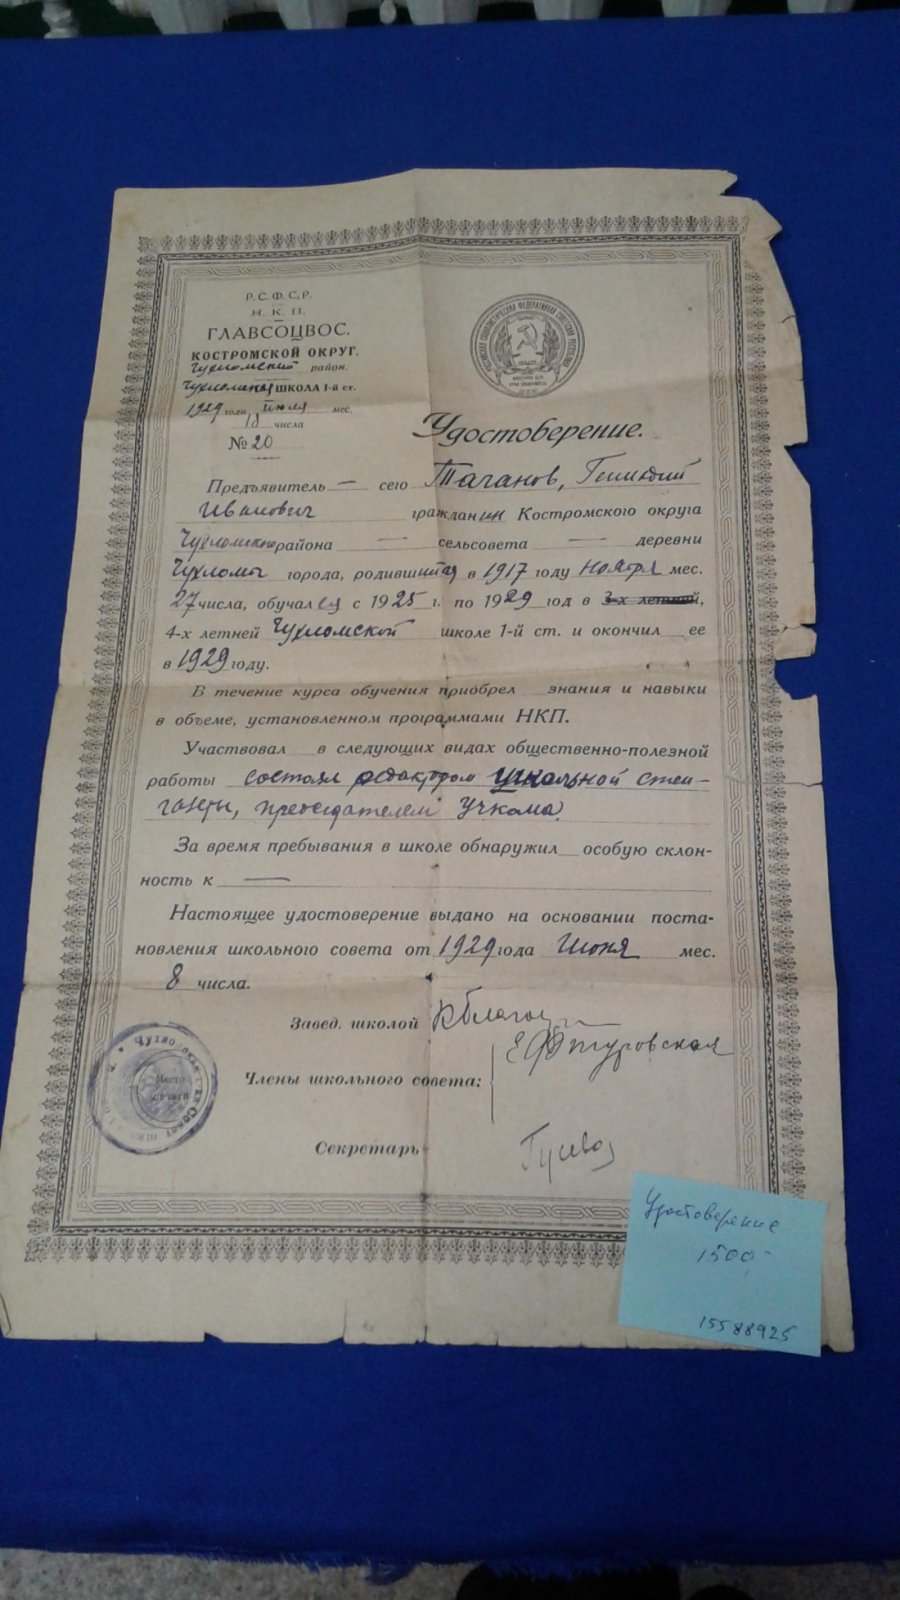 Р.С.Ф.С.Р.
Н. К. П.
ГЛАВСОЦВОС.
КОСТРОМСКОЙ ОКРУГ.
Чухломский район.
Чухломская ШКОЛА 1-й ст.
1929 года июля мес.
числа
№ 20
Удостоверение.
Предъявитель — сего Таганов, Геннадий
Иванович гражданин Костромского округа
Чухломского района — сельсовета — деревни
Чухломы города, родившийся в 1917 году ноября мес.
27 числа, обучался с 1925 г. по 1929 год в 3-х летней,
4-х летней Чухломской школе 1-й ст. и окончил ее
в 1929 году.
В течение курса обучения приобрел знания и навыки
в объеме, установленном программами НКП.
Участвовал в следующих видах общественно-полезной
работы состоял редактором школьной стен-
газеты, председателем учкома.
За время пребывания в школе обнаружил особую склон-
ность к —
Настоящее удостоверение выдано на основании поста-
новления школьного совета от 1929 года Июня мес.
8 числа.
Завед. школой
Члены школьного совета:
Секретарь
Место
печати
Удостоверение
1500-
15588925